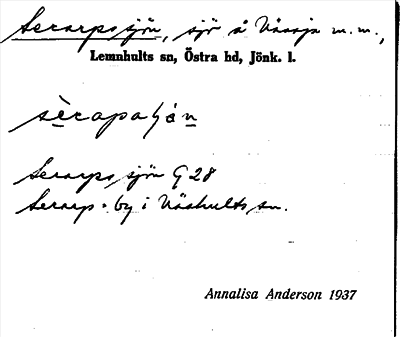 Serarpssjön, sjö å Vässja m.m.,
Lemnhults sn, Östra hd, Jönk. l.
sèrapaʃón
Serarps sjön G 28
Serarp. by i sn.
Annalisa Anderson 1937